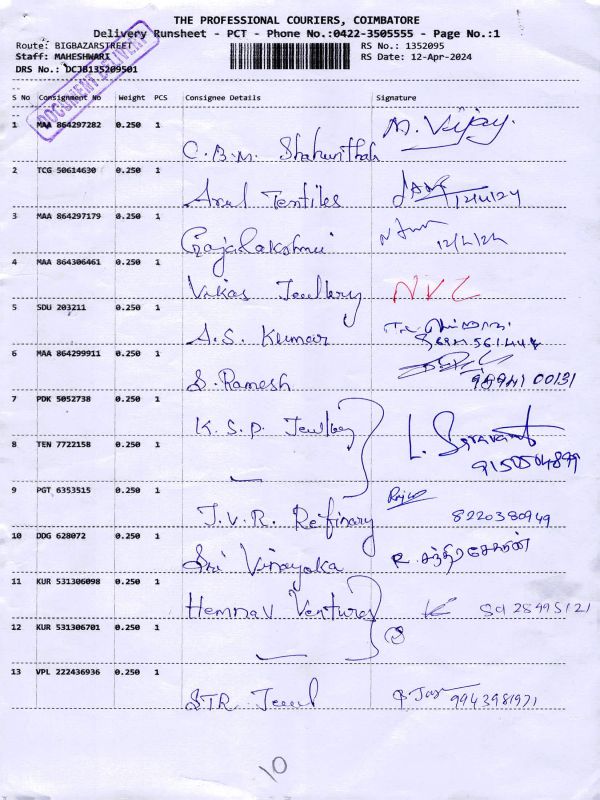 THE PROFESSIONAL COURIERS, COIMBATORE
Delivery Runsheet - PCT - Phone No.:0422-3505555 - Page No.:1
Route: BIGBAZARSTREET RS No.: 1352095
Staff: MAHESHWARI RS Date: 12-Apr-2024
DRS No.: DCJB135209501
DOCUMENT DELIVERY
S No Consignment No Weight PCS Consignee Details Signature
1 MAA 864297282 0.250 1 C.B.M. M. Vijay.
2 TCG 50614630 0.250 1 Arul Textiles 12/4/24
3 MAA 864297179 0.250 1 Gajalakshmi 12/4/24
4 MAA 864306461 0.250 1 Vikas Jewllery NVC
5 SDU 203211 0.250 1 A.S. Kumar
6 MAA 864299911 0.250 1 S. Ramesh 98941 00131
7 PDK 5052738 0.250 1 K.S.P. Jewllery
8 TEN 7722158 0.250 1 L. Saravanan
9 PGT 6353515 0.250 1 J.V.R. Refinary 8220380949
10 DDG 628072 0.250 1 Sri Vinayaka R. சந்திரசேகரன்
11 KUR 531306098 0.250 1 Hemnav Ventures
12 KUR 531306701 0.250 1
13 VPL 222436936 0.250 1 STR Jewel 9943981971
10